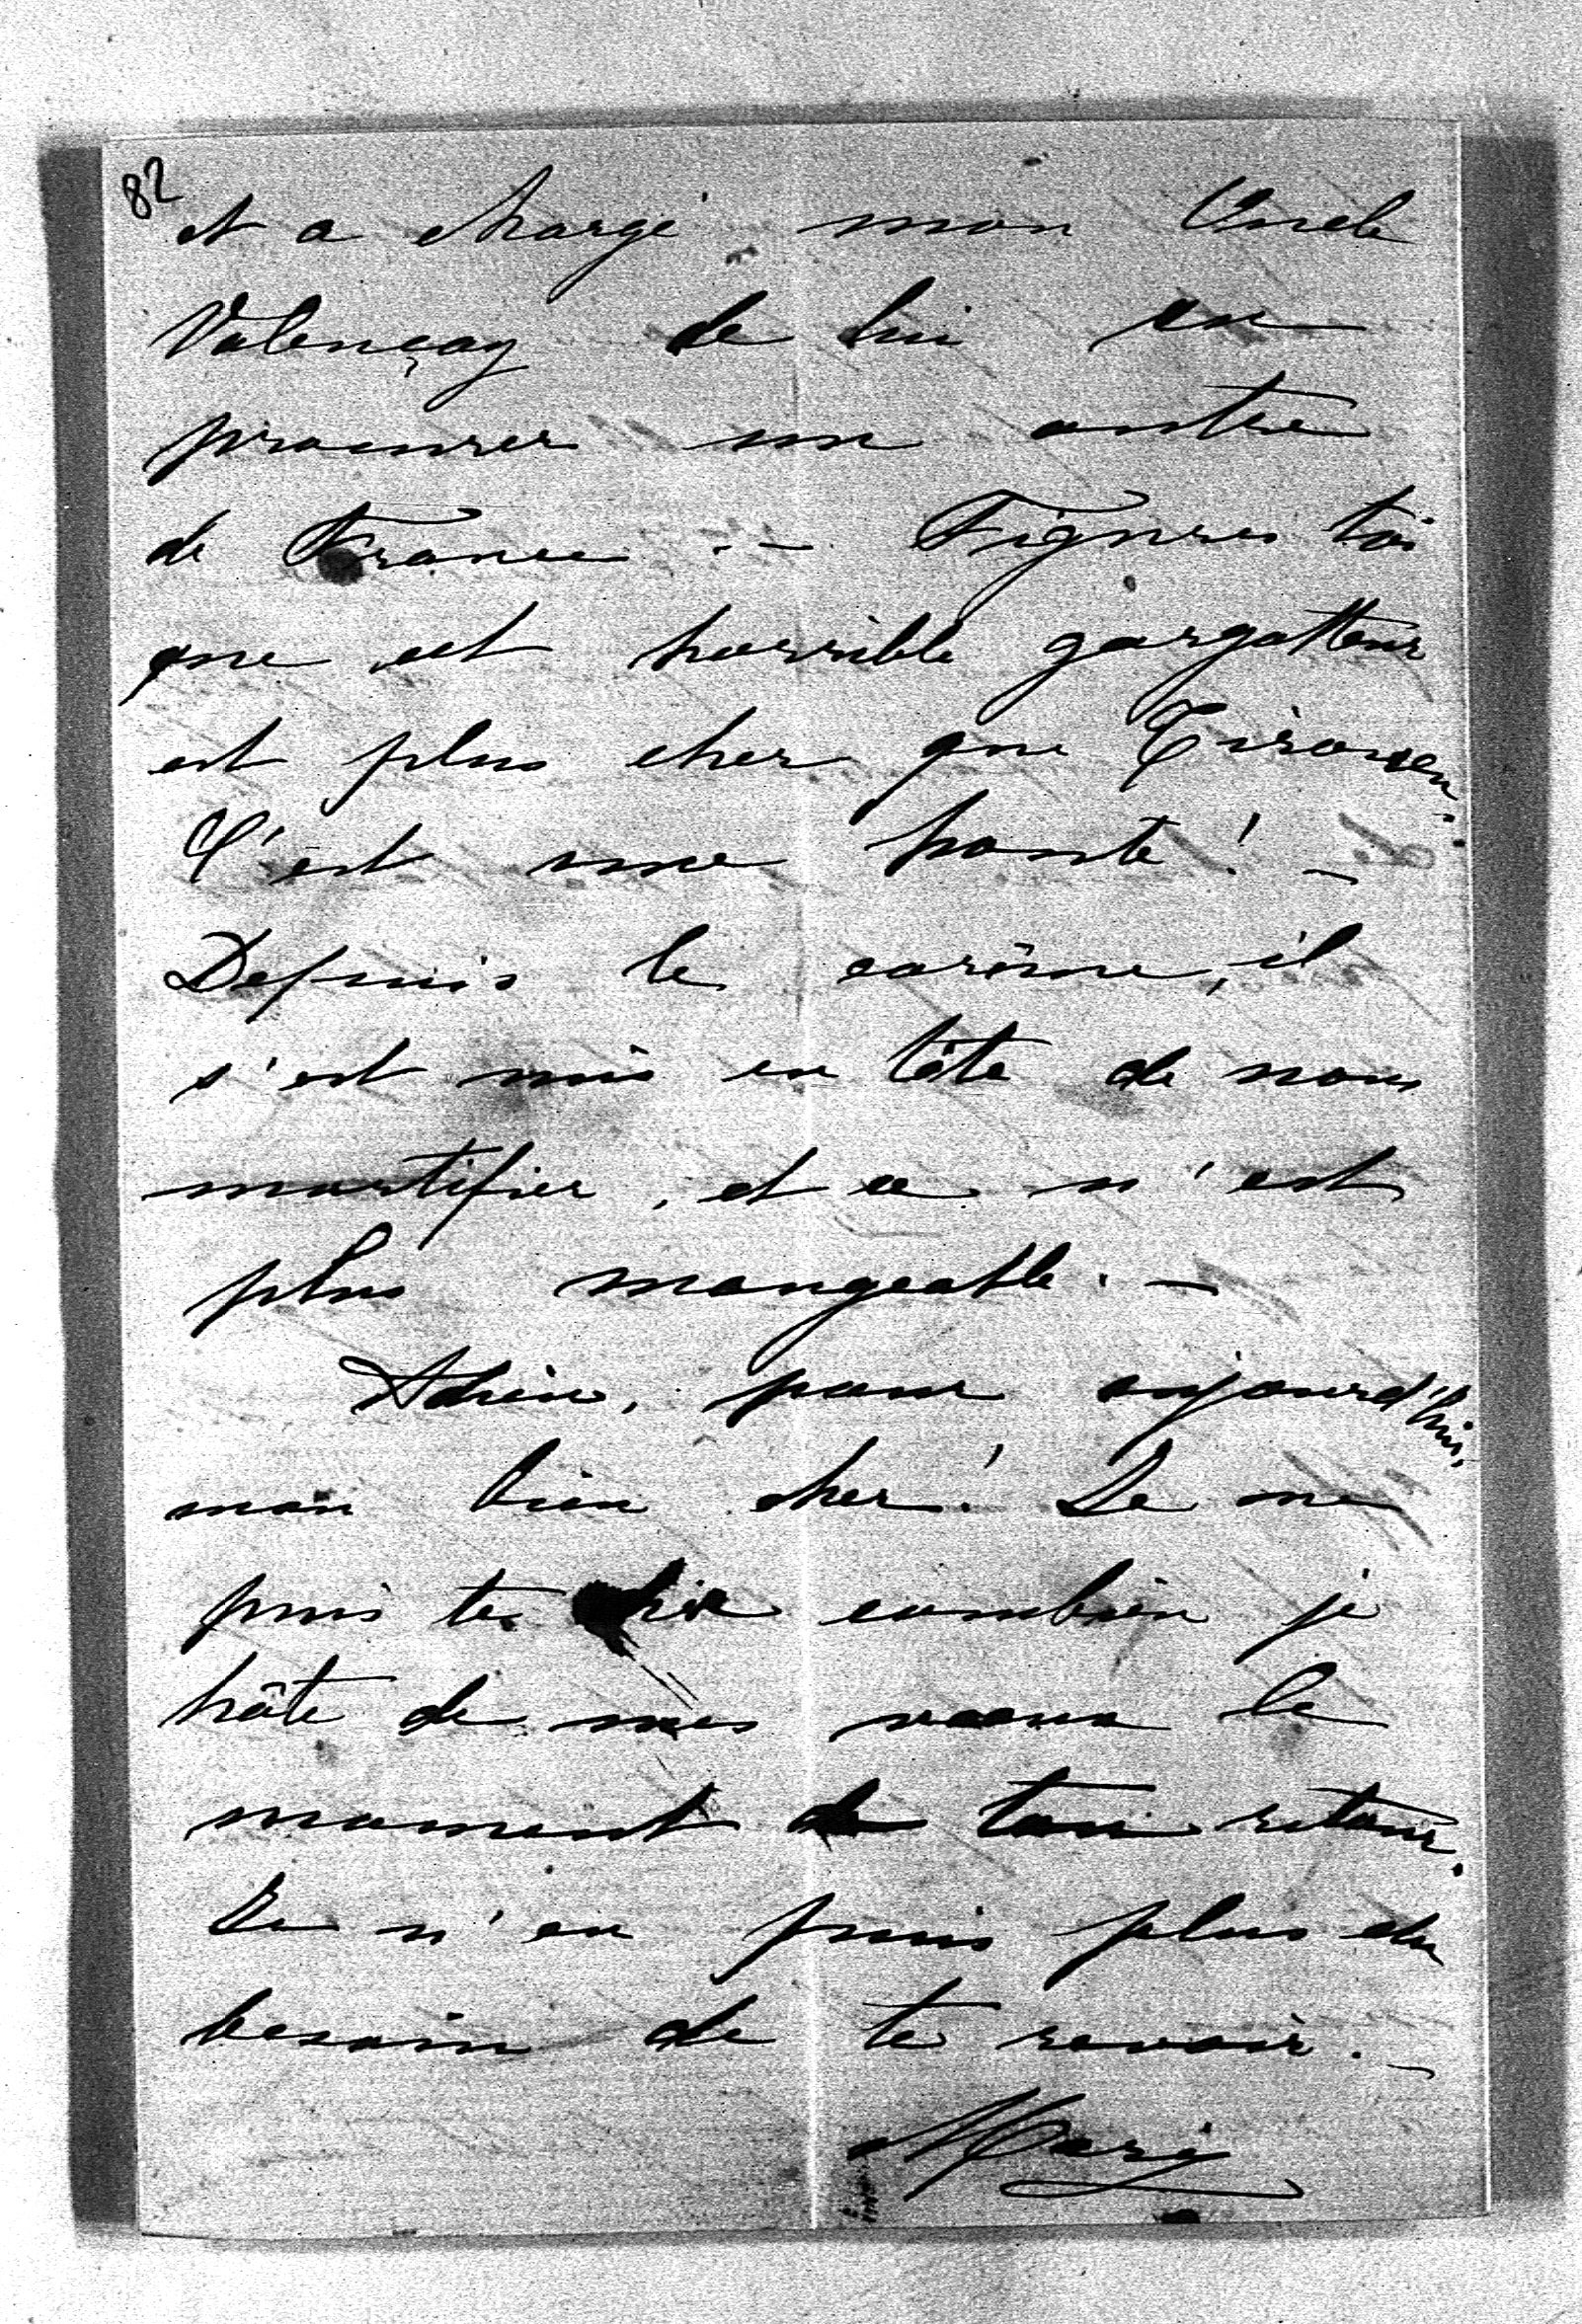 82
et a chargé mon Oncle
Valençay de lui en
procurer un autre
de France. — Figures toi
que cet horrible gargotteur
est plus cher que
C'est une honte ! —
Depuis le carême, il
s'est mis en tête de nous
mortifier, et ce n'est
plus mangeable. —
Adieu, pour aujourd'hui,
mon bien cher ! Je ne
puis te dire combien je
hâte de mes vœux le
moment de ton retour.
Je n'en puis plus du
besoin de te revoir. —